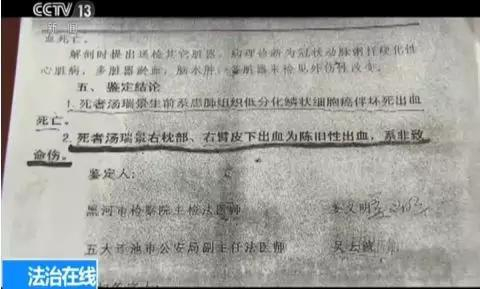 CCTV 13
新闻
血死亡。
解剖时提出送检其它脏器，病理诊断为冠状动脉粥样硬化性
心脏病，多脏器淤血，脑水肿，各脏器未检见外伤性改变。
五、鉴定结论
1. 死者汤瑞景生前系患肺组织低分化鳞状细胞癌伴坏死出血
死亡。
2. 死者汤瑞景右枕部、右臂皮下出血为陈旧性出血，系非致
命伤。
鉴定人：
黑河市检察院主检法医师
五大连池市公安局副主任法医师
法治在线